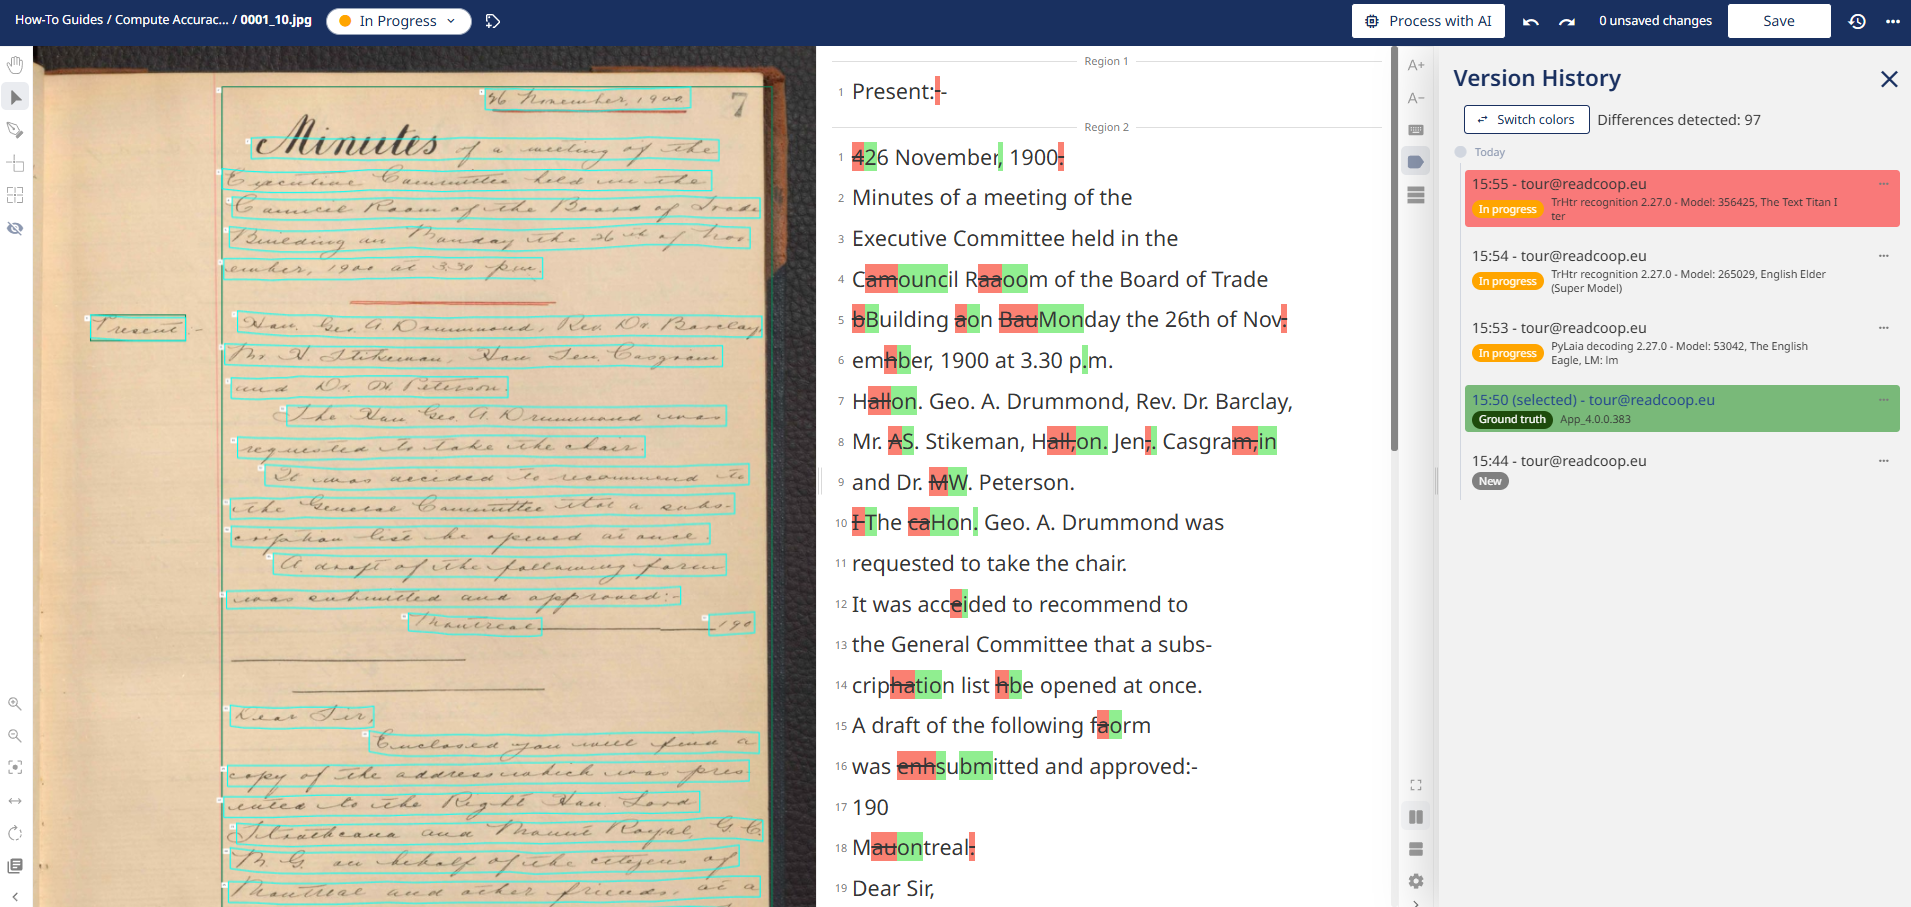 How-To Guides / Compute Accurac... / 0001_10.jpg
In Progress
Process with AI
0 unsaved changes
Save
26 November, 1900
7
Minutes of a meeting of the
Executive Committee held in the
Council Room of the Board of Trade
Building on Monday the 26th of Nov
ember, 1900 at 3.30 p.m.
Present:-
Hon. Geo. A. Drummond, Rev. Dr. Barclay,
Mr. H. Stikeman, Hon. Jen. Casgrain
and Dr. W. Peterson.
The Hon. Geo. A. Drummond was
requested to take the chair.
It was decided to recommend to
the General Committee that a subs-
cription list be opened at once.
A draft of the following form
was submitted and approved:-
Montreal 190
Dear Sir,
Enclosed you will find a
copy of the address which was pres-
ented to the Right Hon. Lord
Strathcona and Mount Royal, G.C.
M.G. on behalf of the citizens of
Montreal and other friends, at a
Region 1
1 Present:--
Region 2
1 426 November, 1900.
2 Minutes of a meeting of the
3 Executive Committee held in the
4 Camouncil Raaoom of the Board of Trade
5 bBuilding aon BauMonday the 26th of Nov.
6 emhber, 1900 at 3.30 p.m.
7 Hallon. Geo. A. Drummond, Rev. Dr. Barclay,
8 Mr. AS. Stikeman, Hall,on. Jen,. Casgram,in
9 and Dr. MW. Peterson.
10 I The caHon. Geo. A. Drummond was
11 requested to take the chair.
12 It was acceided to recommend to
13 the General Committee that a subs-
14 criphation list hbe opened at once.
15 A draft of the following faorm
16 was enhsubmitted and approved:-
17 190
18 Mauontreal.
19 Dear Sir,
A+
A-
Version History
Switch colors
Differences detected: 97
Today
15:55 - tour@readcoop.eu
In progress
TrHtr recognition 2.27.0 - Model: 356425, The Text Titan I
ter
15:54 - tour@readcoop.eu
In progress
TrHtr recognition 2.27.0 - Model: 265029, English Elder
(Super Model)
15:53 - tour@readcoop.eu
In progress
PyLaia decoding 2.27.0 - Model: 53042, The English
Eagle, LM: lm
15:50 (selected) - tour@readcoop.eu
Ground truth
App_4.0.0.383
15:44 - tour@readcoop.eu
New